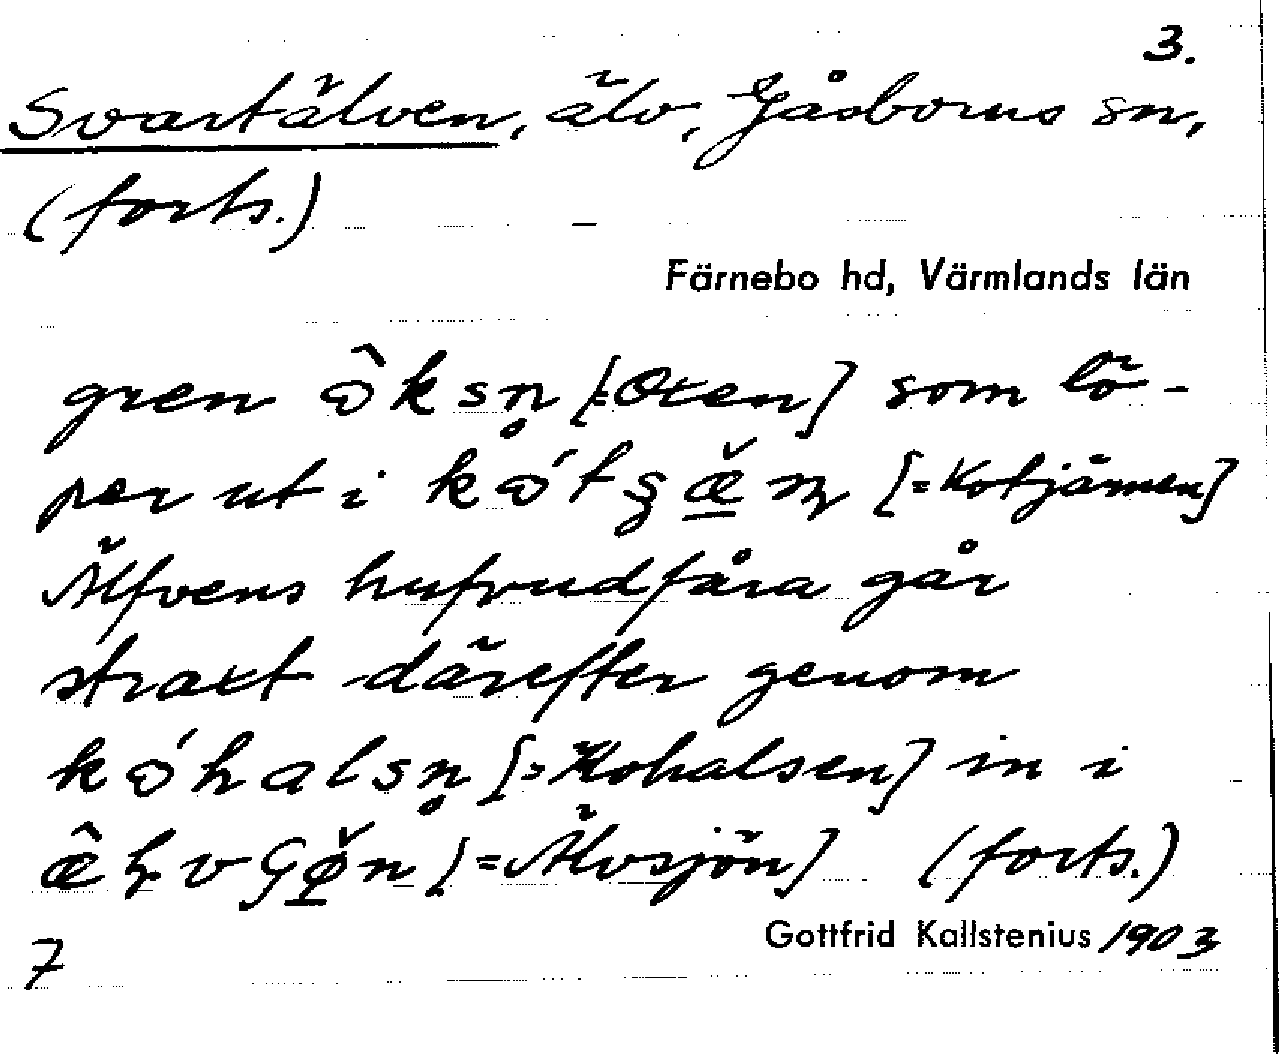 3.
Svartälven, älv, Gåsborns sn,
(forts.)
Färnebo hd, Värmlands län
gren ɔ̂ksn̥ [=Oxen] som lö-
per ut i [=Kotjärnen]
Älfvens hufvudfåra går
straxt därefter genom
kɔ́halsn̥ [=Kohalsen] in i
[=Älvsjön] (forts.)
Gottfrid Kallstenius 1903
7